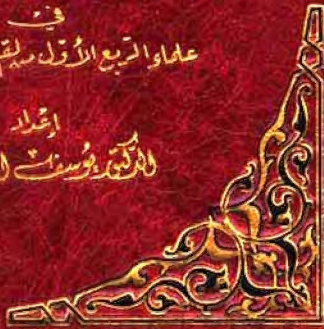 في
علماء الربع الأول من
إعداد
الدكتور يوسف